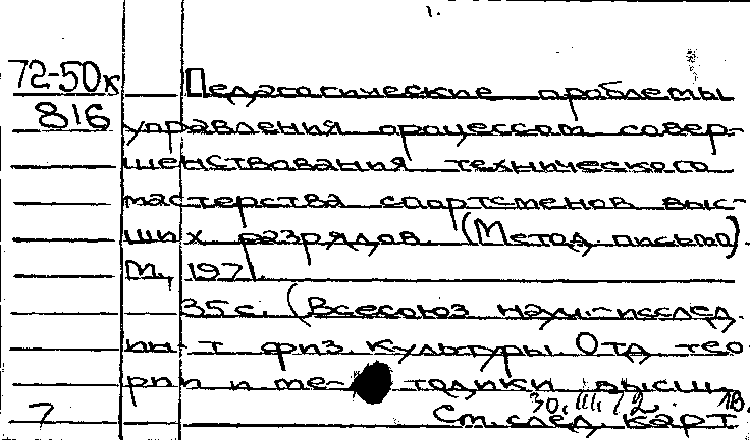 1.
72-50к Педагогические проблемы
816 управления процессом совер-
шенствования технического
мастерства спортсменов выс-
ших разрядов. (Метод. письмо).
М., 1971.
35 с. (Всесоюз науч.-исслед.
ин-т физ культуры Отд тео-
рии и ме- тодики высш
30.III.72. 10.
7 См. след. карт